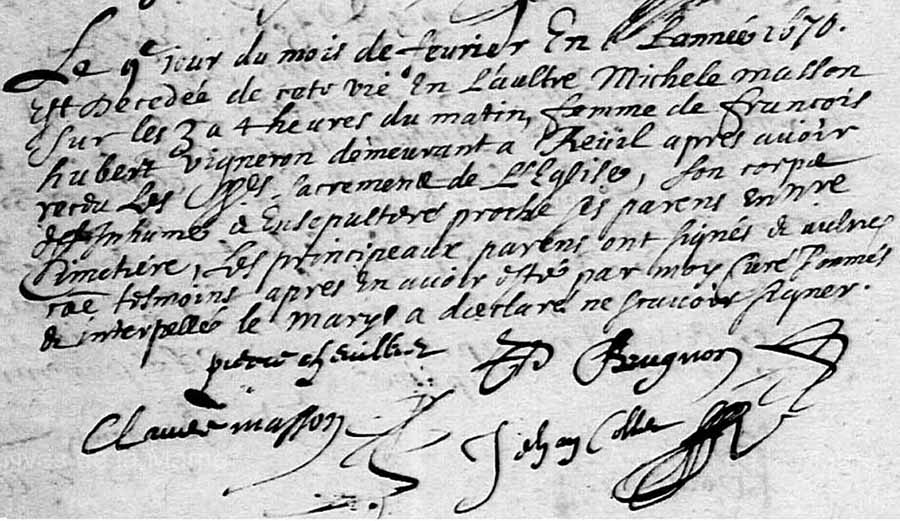 Le 9e jour du mois de fevrier En l'année 1670.
Est Decedée de cete vie En L'aultre Michele masson
sur les 3 a 4 heures du matin, femme de francois
hubert vigneron demeurant a Reüil apres avoir
recëu Les sacremens de L'Eglise, son corps
Inhumé & Ensepulturé proche ses parens en nre
Cimetiére, Les principeaux parens ont signés &
tesmoins apres en avoir esté par moy Curé sommés
& interpellés le marys a declaré ne scavoir signer.
pierre cheuillier P Brugnon
Claude masson Jehan Collet